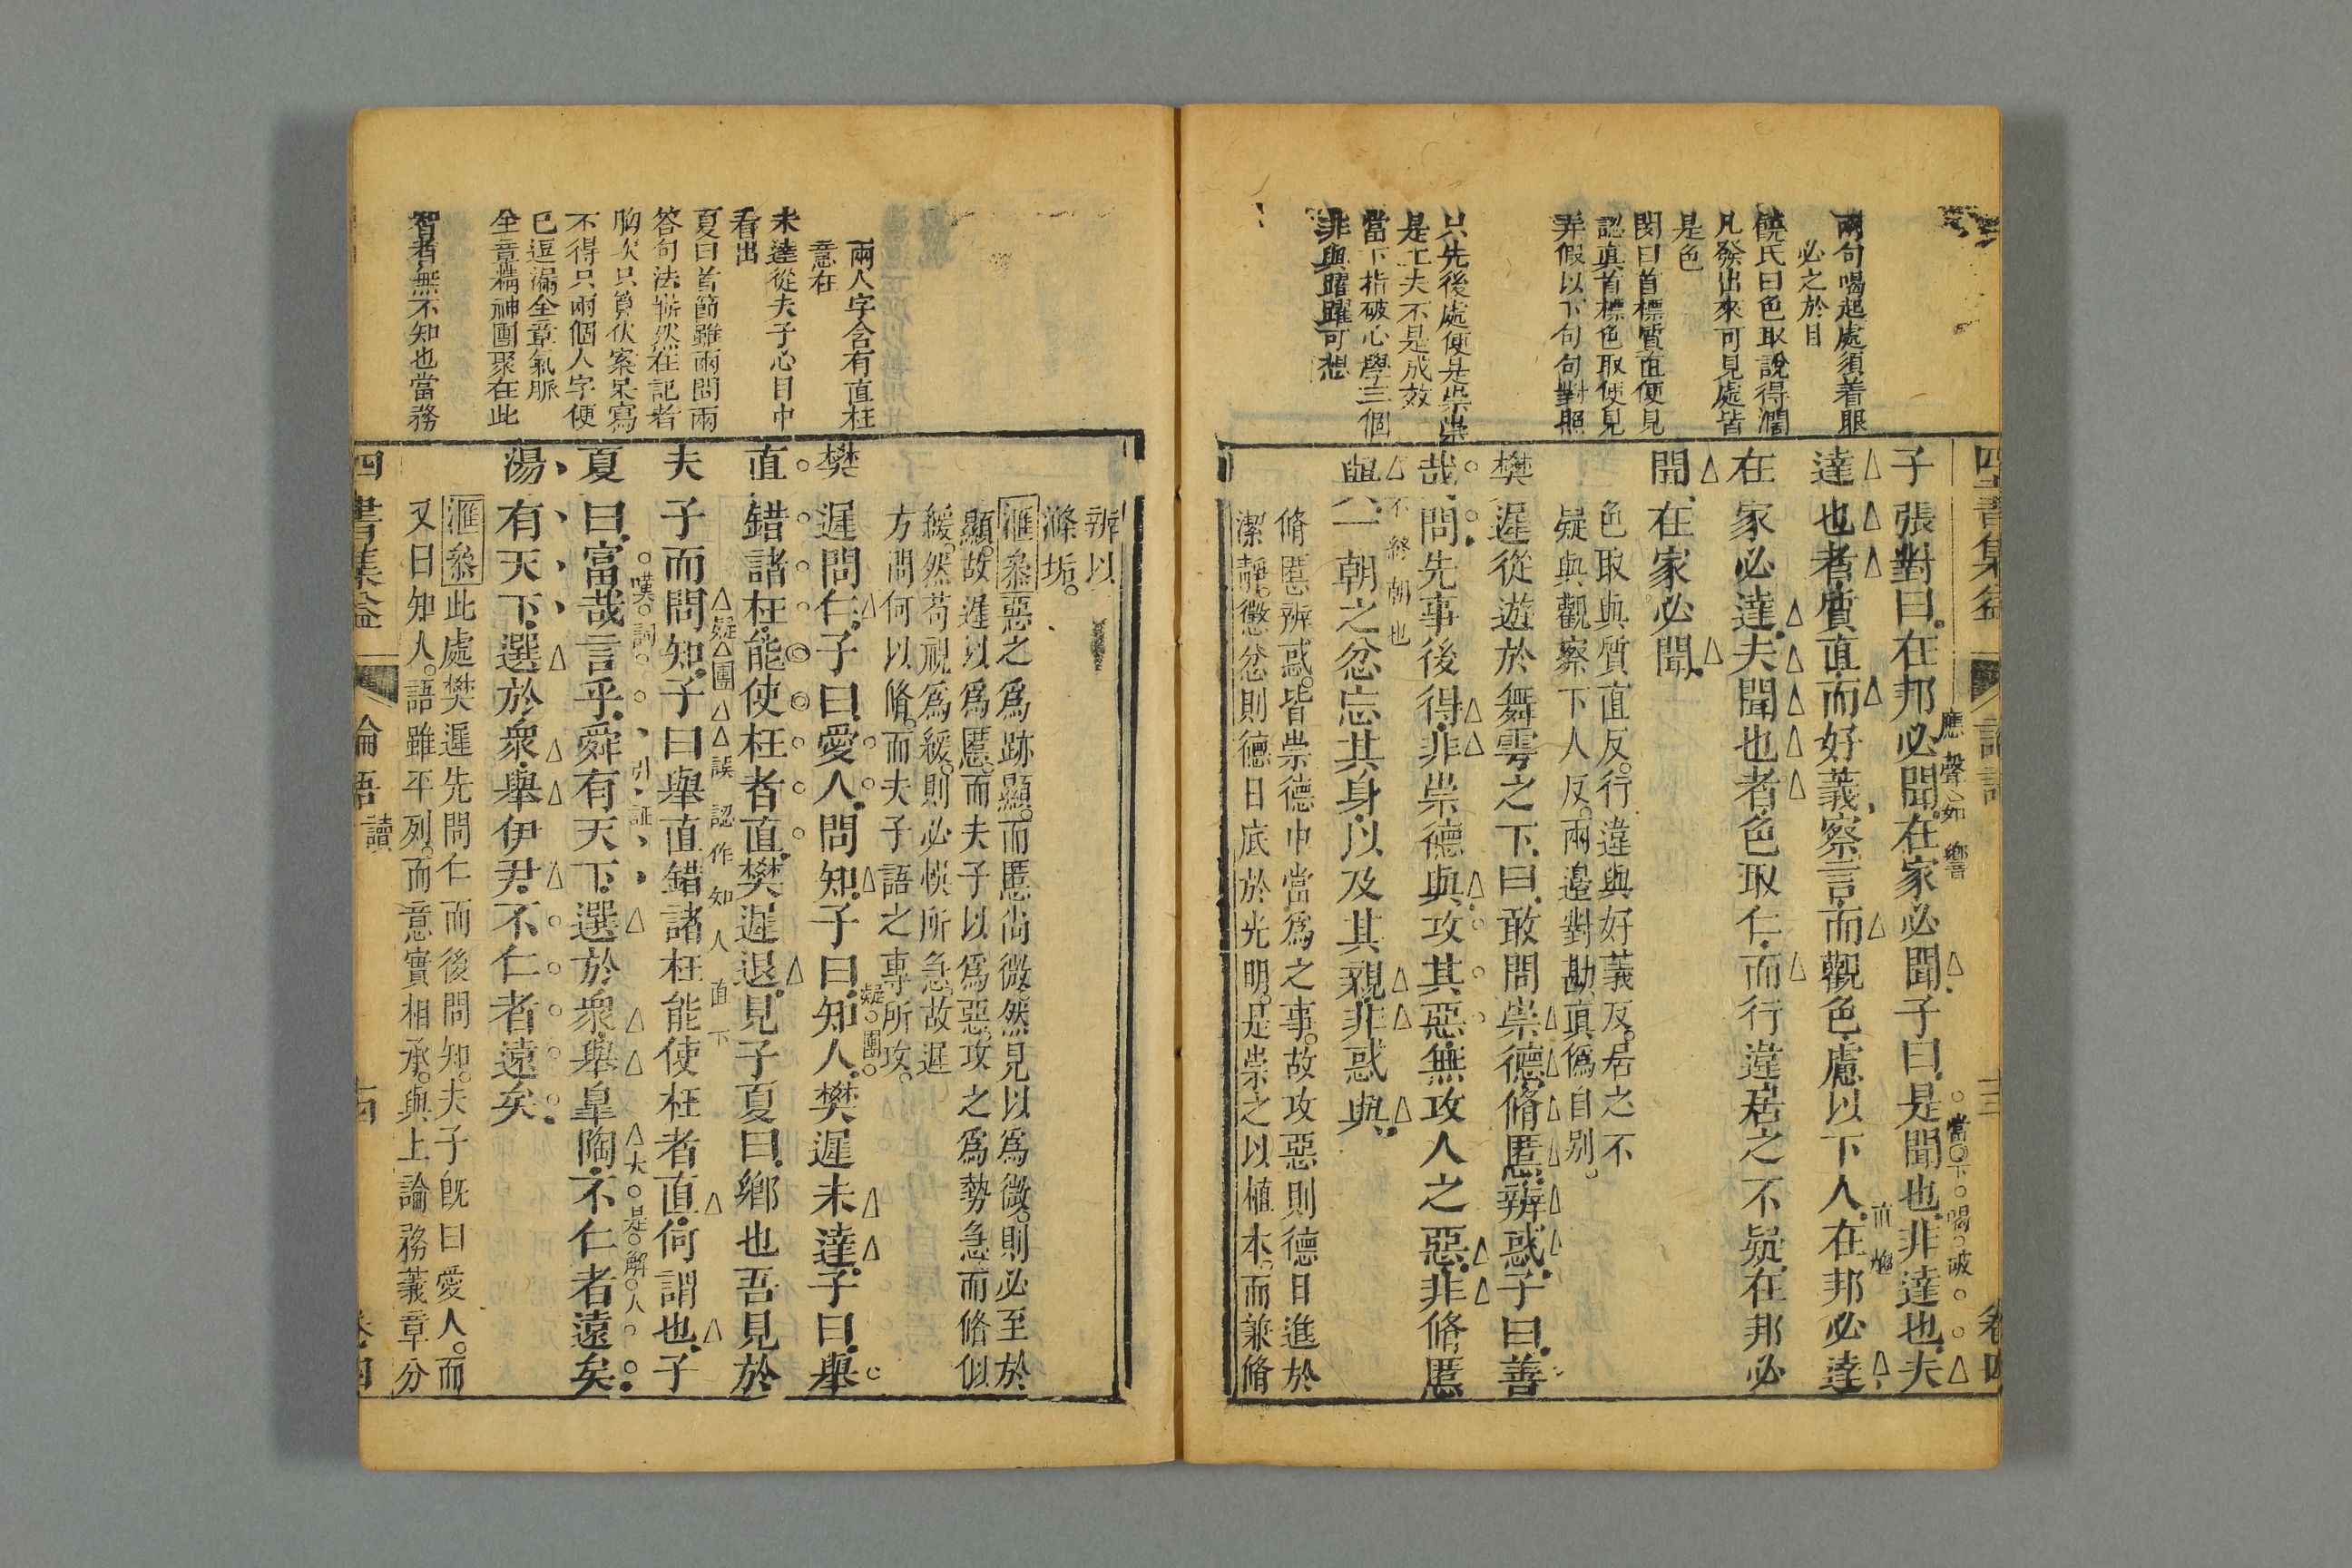 兩句喝起處須着眼
必之於目
饒氏曰色取說得濶
凡發出來可見處皆
是色
閔曰首標質直便見
認真首標色取便見
弄假以下句句對照
只先後處便是崇
是工夫不是成效
當下指破心學三個
非與躍躍可想
四書集益
論語
卷四
子張對曰在邦必聞在家必聞子曰是聞也非達也夫
應聲如響
當下喝破
達也者質直而好義察言而觀色慮以下人在邦必達
在家必達夫聞也者色取仁而行違居之不疑在邦必
聞在家必聞
色取與質直反行違與好義反居之不
疑與觀察下人反兩邊對勘真偽自別
樊遲從遊於舞雩之下曰敢問崇德脩慝辨惑子曰善
哉問先事後得非崇德與攻其惡無攻人之惡非脩慝
與一朝之忿忘其身以及其親非惑與
不終朝也
脩慝辨惑皆崇德中當爲之事故攻惡則德日進於
潔靜懲忿則德日底於光明是崇之以植本而兼脩
兩人字含有直枉
意在
未達從夫子心目中
看出
夏曰首節雖兩問兩
答句法嶄然在記者
胸次只算伏案呆寫
不得只兩個人字便
已逗漏全章氣脈
全章精神團聚在此
智者無不知也當務
辨以
滌垢
滙叅惡之爲跡顯而慝尚微然見以爲微則必至於
顯故遲以爲慝而夫子以爲惡攻之爲勢急而脩似
緩然苟視爲緩則必悞所急故遲
方問何以脩而夫子語之專所攻
樊遲問仁子曰愛人問知子曰知人樊遲未達子曰舉
疑團
直錯諸枉能使枉者直樊遲退見子夏曰鄉也吾見於
疑團誤認作知人直下
夫子而問知子曰舉直錯諸枉能使枉者直何謂也子
嘆詞引証大是解人
夏曰富哉言乎舜有天下選於衆舉皐陶不仁者遠矣
湯有天下選於衆舉伊尹不仁者遠矣
滙叅此處樊遲先問仁而後問知夫子旣曰愛人而
又曰知人語雖平列而意實相承與上論務義章分
四書集益
論語
讀
卷四